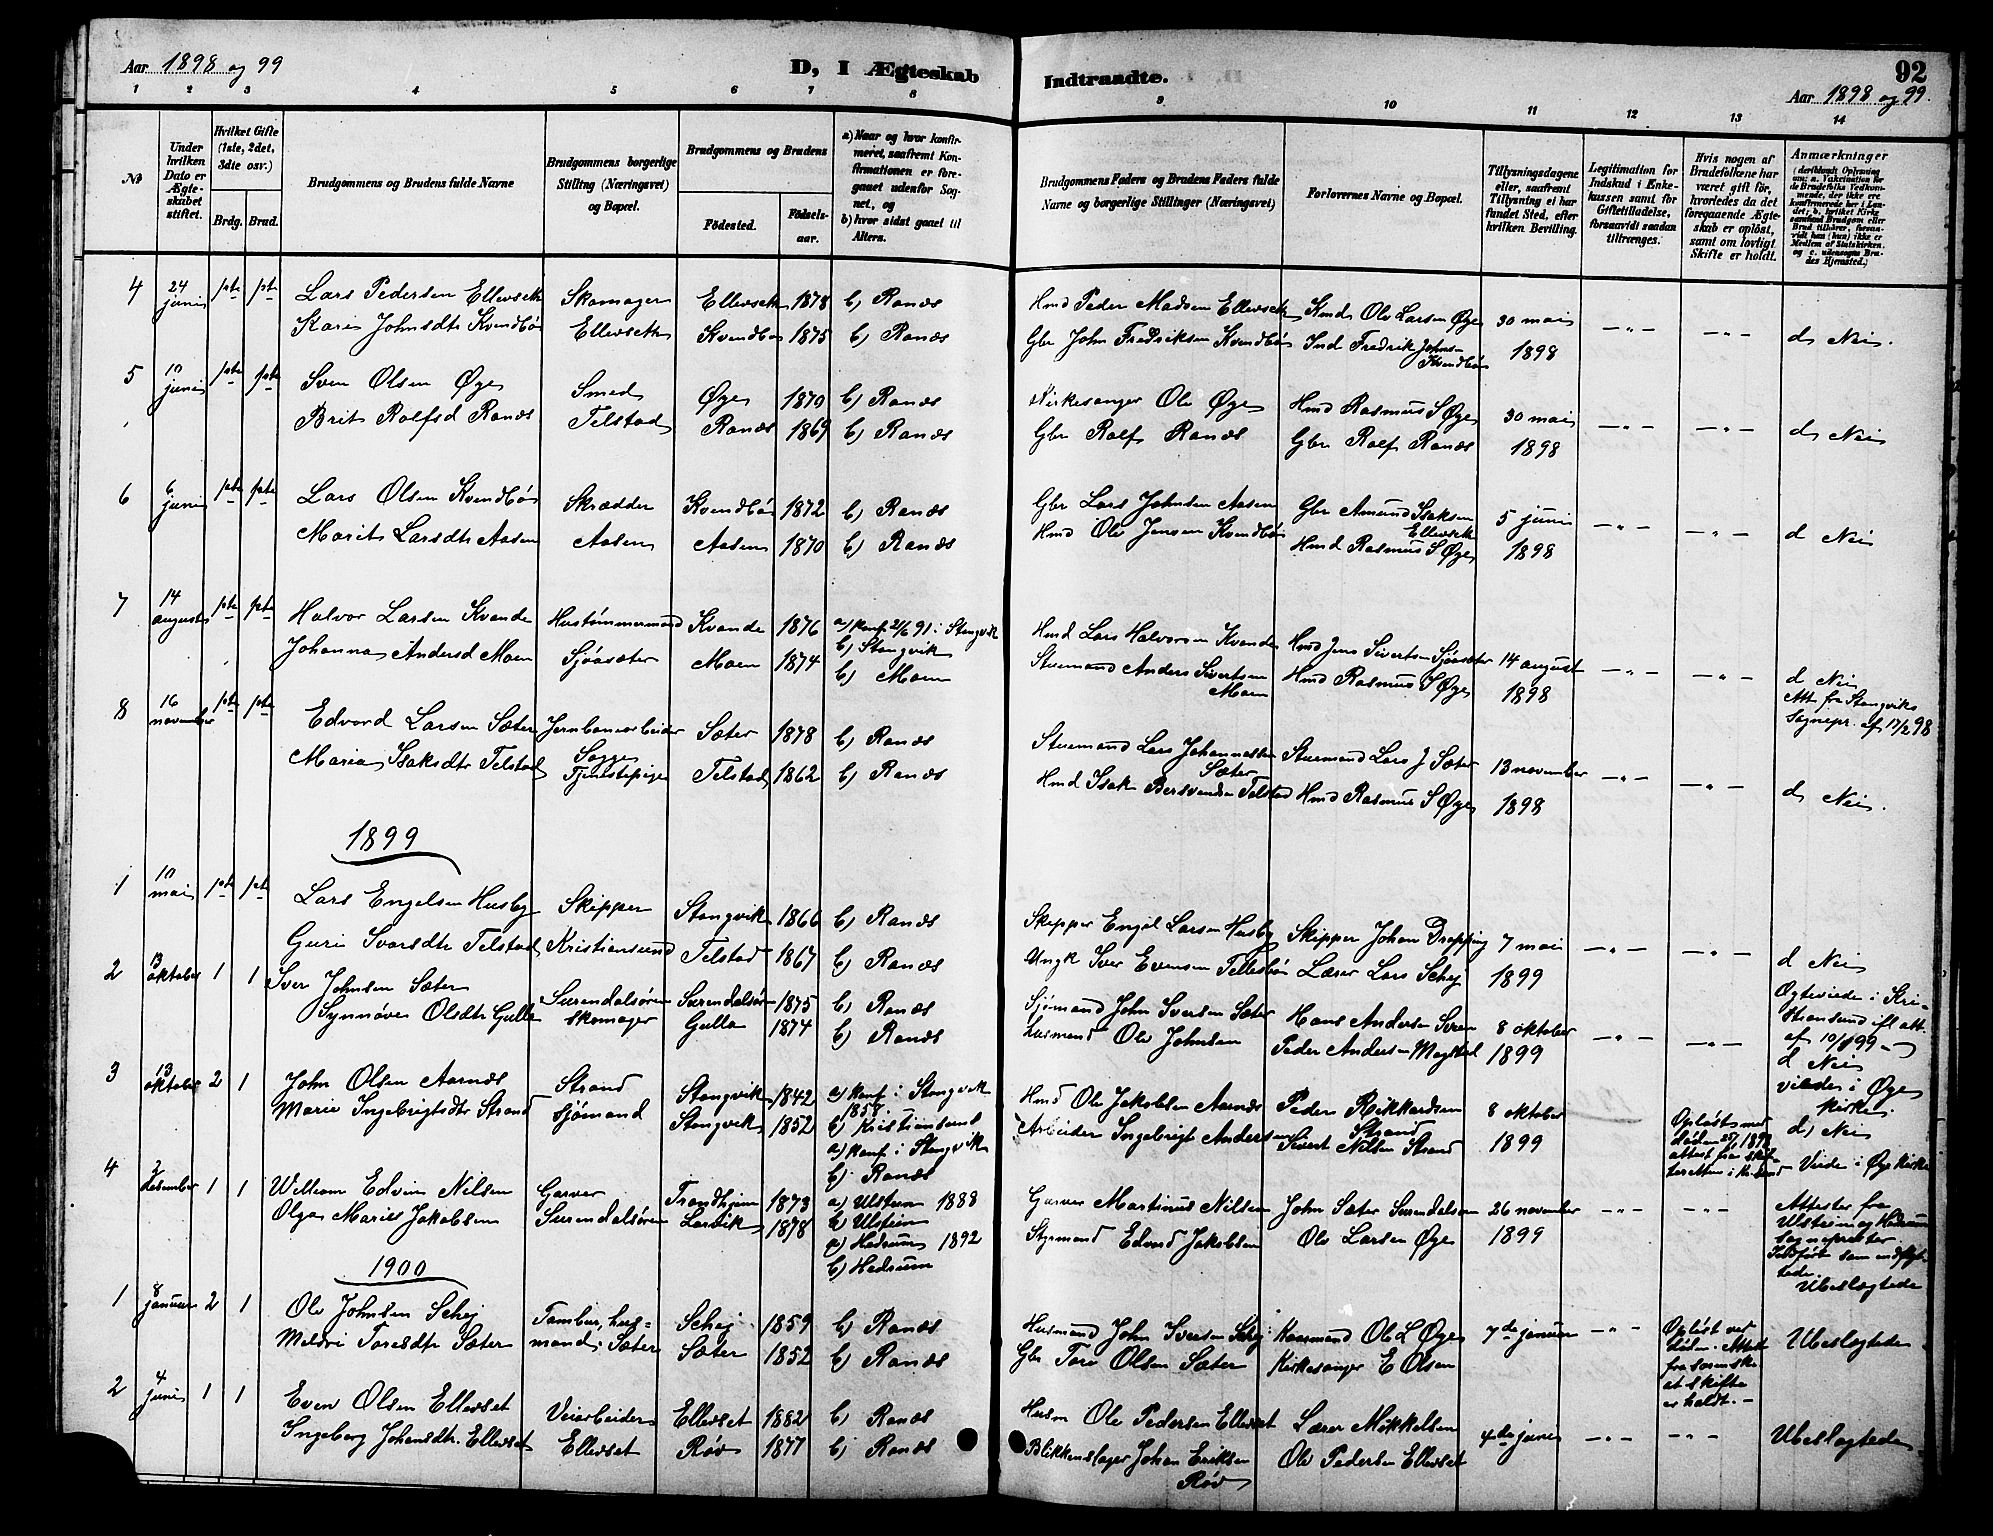 Aar 1898 og 99
D, I Ægteskab
Indtraadte.
92
Aar 1898 og 99.
1 2 3 4 5 6 7 8 9 10 11 12 13 14
No
Under hvilken Dato er Ægteskabet stiftet.
Hvilket Gifte (1ste, 2det, 3die osv.)
Brdg. Brud.
Brudgommens og Brudens fulde Navne
Brudgommens borgerlige Stilling (Næringsvei) og Bopæl.
Brudgommens og Brudens
Födested. Födselsaar.
a) Naar og hvor konfirmeret, saafremt Konfirmationen er foregaaet udenfor Sognet, og
b) hvor sidst gaaet til Alters.
Brudgommens Faders og Brudens Faders fulde Navne og borgerlige Stillinger (Næringsvei)
Forlovernes Navne og Bopæl.
Tillysningsdagene eller, saafremt Tillysning ei har fundet Sted, efter hvilken Bevilling.
Legitimation for Indskud i Enkekassen samt for Giftetilladelse, forsaavidt saadan tiltrænges.
Hvis nogen af Brudefolkene har været gift för, hvorledes da det foregaaende Ægteskab er oplöst, samt om lovligt Skifte er holdt.
Anmærkninger
4 24 juni 1ste 1ste Lars Pedersen Ellevseth Skomager Ellevseth 1878 b) Ranæs Hmd Peder Madsen Ellevseth Hmd Ole Larsen Øye 30 mai — " — — " — d Nei.
Kari Johnsdtr Kvendbø Ellevseth Kvendbø 1875 b) Ranæs Gbr John Fredriksen Kvendbø Ind Fredrik Johns- Kvendbø 1898
5 10 juni 1ste 1ste Sven Olsen Øye Smed Øye 1870 b) Ranæs Kirkesanger Ole Øye Hmd Rasmus S Øye 30 mai — " — — " — d Nei
Brit Rolfsd Ranæs Telstad Ranæs 1869 b) Ranæs Gbr Rolf Ranæs Gbr Rolf Ranæs 1898
6 6 juni 1ste 1ste Lars Olsen Kvendbø Skrædder Kvendbø 1872 b) Ranæs Gbr Lars Johnsen Aasen Gbr Amund Isaksen Ellevseth 5 juni — " — — " — d Nei
Marit Larsdtr Aasen Aasen Aasen 1870 b) Ranæs Hmd Ole Jensen Kvendbø Hmd Rasmus S Øye 1898
7 14 august 1ste 1ste Halvor Larsen Kvande Hustømmermand Kvande 1876 a) Konf 21/6 91 i Stangvik b) Stangvik Hmd Lars Halvorsen Kvande Hmd Jens Sivertsen Sjøasæter 14 august — " — — " — d Nei
Johanna Andersd Moen Sjøasæter Moen 1874 b) Moen Stuemand Anders Sivertsen Moen Hmd Rasmus S Øye 1898 Att fra Stangviks Sognepr. af 17/2 98
8 16 november 1ste 1ste Edvard Larsen Sæter Jernbanearbeider Sæter 1878 b) Ranæs Stuemand Lars Johannessen Sæter Stuemand Lars J Sæter 13 november — " — — " — d Nei.
Maria Isaksdtr Telstad Sogge Tjenstepige Telstad 1862 b) Ranæs Hmd Isak Bersvendsen Telstad Hmd Rasmus S Øye 1898
1899
1 10 mai 1ste 1ste Lars Engelsen Husby Skipper Stangvik 1866 b) Ranæs Skipper Engel Larsen Husby Skipper Johan Dropping 7 mai — " — — " — d Nei
Guri Ivarsdtr Telstad Kristiansund Telstad 1867 b) Ranæs Ungk Iver Evensen Lærer Lars Schej 1899 Ægteviede i Kristiansund ifl att. af
2 13 oktober 1 1 Iver Johnsen Sæter Surendalsøren Surendalsøren 1875 b) Ranæs Sjømand John Iversen Sæter Hans Andersen 8 oktober — " — — " — d Nei
Synnøve Olsdtr Gulla skomager Gulla 1874 b) Ranæs Husmand Ole Johnsen Peder Andersen Mogstad 1899 viede i Øye kirke.
3 13 oktober 2 1 John Olsen Aarnæs Strand Stangvik 1842 a) Konf i Stangvik 1858 b) Kristiansund Hmd Ole Jakobsen Aarnæs Peder Rikkardsen Strand 8 oktober Opløst ved døden 1898 attest fra skifteretten i d) Nei
Marie Ingebrigtsdtr Strand sjømand Stangvik 1852 a) Konf i Stangvik b) Ranæs Arbeider Ingebrigt Andersen Sivert Nilsen Strand 1899 Viede i Øye Kirke
4 2 desember 1 1 William Edvin Nilsen Garver Trondhjem 1873 a) Ulstein 1888 b) Ulstein Garver Martinus Nilsen John Sæter Surendalsøren 26 november — " — — " — Attester fra Ulstein og Hedrum sognepræster. Indført som indflyttede.
Olga Marie Jakobsen Surendalsøren Larvik 1878 a) Hedrum 1892 b) Hedrum Styrmand Edvard Jakobsen Ole Larsen Øye 1899 Ubeslægtede
1900
1 8 januar 2 1 Ole Johnsen Schej Tambur, husmand, Sæter Schej 1859 b) Ranæs Husmand John Iversen Schej Kaarmand Ole L Øye 7de januar — " — Opløst ved døden. Attest fra sorenskr. at skifte er holdt. — Ubeslægtede.
Mildri Toresdtr Sæter Sæter 1852 b) Ranæs Gbr Tore Olsen Sæter Kirkesanger E Olsen
2 4 juni 1 1 Even Olsen Ellevset Veiarbeider Ellevset 1882 b) Ranæs Husm Ole Pedersen Ellevset Lærer Mikkelsen 4de juni — " — — " — Ubeslægtede.
Ingeborg Johansdtr. Ellevset Ellevset Røv 1877 b) Ranæs Blikkenslager Johan Eriksen Røv Ole Pedersen Ellevset